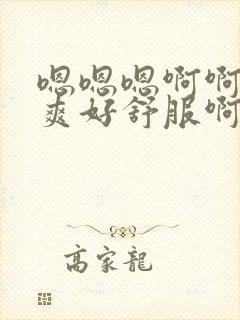 嗯嗯嗯啊啊
爽好舒服啊
高家龍